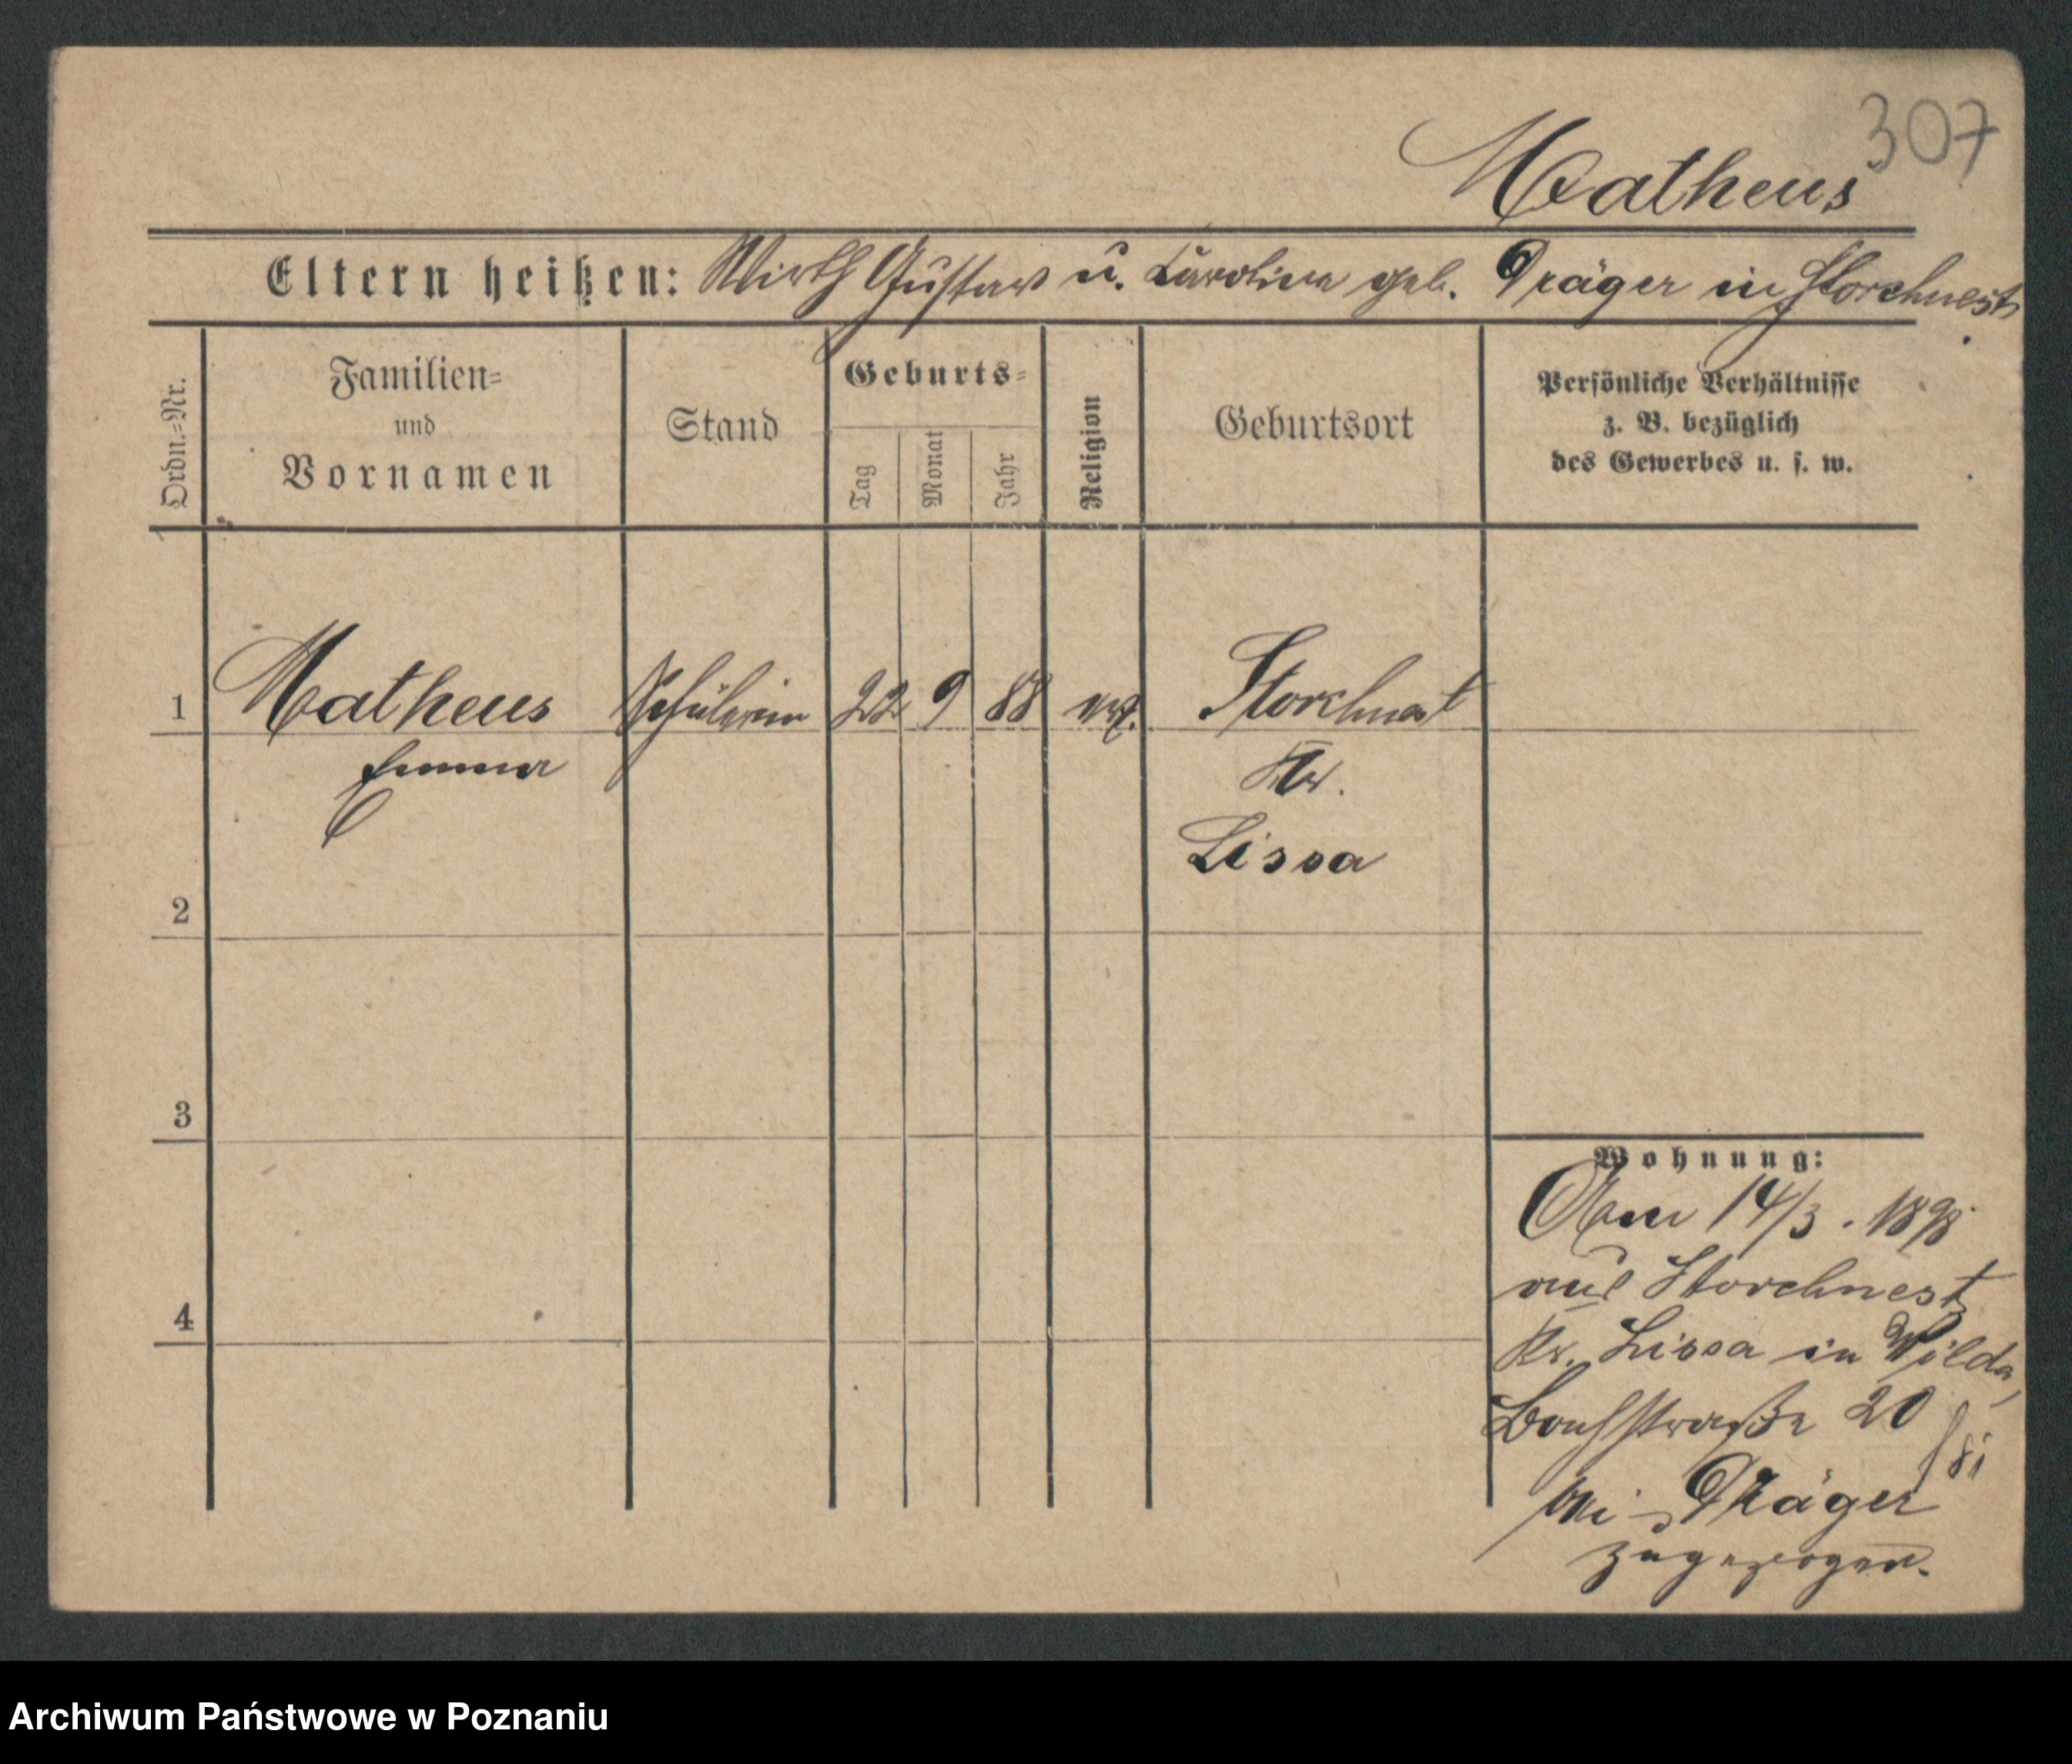 307
Matheus
Eltern heißen: Wirth Gustav u. Karoline geb. Dräger in Storchnest
Ordn.=Nr.
Familien=
und
Vornamen
Stand
Geburts=
Tag
Monat
Jahr
Religion
Geburtsort
Persönliche Verhältnisse
z. B. bezüglich
des Gewerbes u. s. w.
1 Matheus Schülerin 22 9 88 ev. Storchnest
Emma Kr.
Lissa
2
3
4
Wohnung:
Am 14/3. 1898
aus Storchnest
Kr. Lissa in Wilda,
Bachstraße 20
bei Dräger
zugezogen.
Archiwum Państwowe w Poznaniu